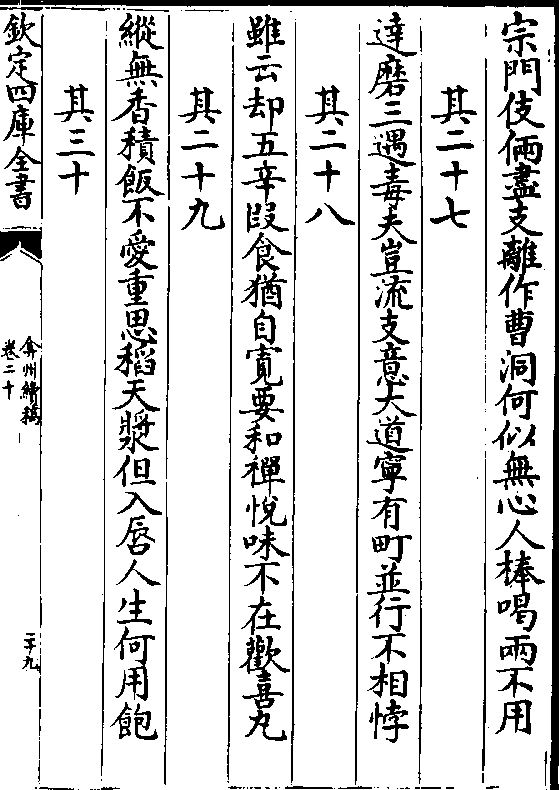 宗門伎倆盡支離作曹洞何似無心人棒喝兩不用
其二十七
達磨三遇毒夫豈流支意大道寧有町並行不相悖
其二十八
雖云却五辛段食猶自寛要和禪悅味不在歡喜丸
其二十九
縱無香積飯不愛重思稻天漿但入唇人生何用飽
其三十
欽定四庫全書
弇州續稿
卷二十
二十九